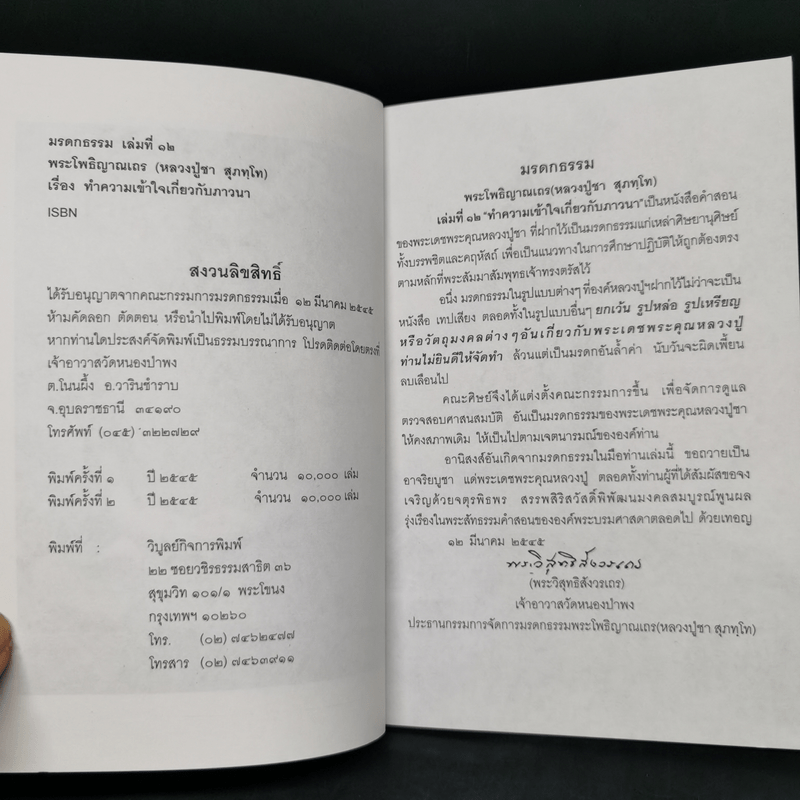 มรดกธรรม เล่มที่ ๑๒
พระโพธิญาณเถร (หลวงปู่ชา สุภทฺโท)
เรื่อง ทำความเข้าใจเกี่ยวกับภาวนา
ISBN
สงวนลิขสิทธิ์
ได้รับอนุญาตจากคณะกรรมการมรดกธรรมเมื่อ ๑๒ มีนาคม ๒๕๔๕
ห้ามคัดลอก ตัดตอน หรือนำไปพิมพ์โดยไม่ได้รับอนุญาต
หากท่านใดประสงค์จัดพิมพ์เป็นธรรมบรรณาการ โปรดติดต่อโดยตรงที่
เจ้าอาวาสวัดหนองป่าพง
ต.โนนผึ้ง อ.วารินชำราบ
จ.อุบลราชธานี ๓๔๑๙๐
โทรศัพท์ (๐๔๕) ๓๒๒๗๒๙
พิมพ์ครั้งที่ ๑ ปี ๒๕๔๕ จำนวน ๑๐,๐๐๐ เล่ม
พิมพ์ครั้งที่ ๒ ปี ๒๕๔๕ จำนวน ๑๐,๐๐๐ เล่ม
พิมพ์ที่ : วิบูลย์กิจการพิมพ์
๒๒ ซอยวชิรธรรมสาธิต ๓๖
สุขุมวิท ๑๐๑/๑ พระโขนง
กรุงเทพฯ ๑๐๒๖๐
โทร. (๐๒) ๗๔๖๒๔๗๗
โทรสาร (๐๒) ๗๔๖๓๙๑๑
มรดกธรรม
พระโพธิญาณเถร(หลวงปู่ชา สุภทฺโท)
เล่มที่ ๑๒ "ทำความเข้าใจเกี่ยวกับภาวนา"เป็นหนังสือคำสอน
ของพระเดชพระคุณหลวงปู่ชา ที่ฝากไว้เป็นมรดกธรรมแก่เหล่าศิษยานุศิษย์
ทั้งบรรพชิตและคฤหัสถ์ เพื่อเป็นแนวทางในการศึกษาปฏิบัติให้ถูกต้องตรง
ตามหลักที่พระสัมมาสัมพุทธเจ้าทรงตรัสไว้
อนึ่ง มรดกธรรมในรูปแบบต่างๆ ที่องค์หลวงปู่ฯฝากไว้ไม่ว่าจะเป็น
หนังสือ เทปเสียง ตลอดทั้งในรูปแบบอื่นๆ ยกเว้น รูปหล่อ รูปเหรียญ
หรือวัตถุมงคลต่างๆอันเกี่ยวกับพระเดชพระคุณหลวงปู่
ท่านไม่ยินดีให้จัดทำ ล้วนแต่เป็นมรดกอันล้ำค่า นับวันจะผิดเพี้ยน
ลบเลือนไป
คณะศิษย์จึงได้แต่งตั้งคณะกรรมการขึ้น เพื่อจัดการดูแล
ตรวจสอบศาสนสมบัติ อันเป็นมรดกธรรมของพระเดชพระคุณหลวงปู่ชา
ให้คงสภาพเดิม ให้เป็นไปตามเจตนารมณ์ขององค์ท่าน
อานิสงส์อันเกิดจากมรดกธรรมในมือท่านเล่มนี้ ขอถวายเป็น
อาจริยบูชา แด่พระเดชพระคุณหลวงปู่ ตลอดทั้งท่านผู้ที่ได้สัมผัสของจง
เจริญด้วยจตุรพิธพร สรรพสิริสวัสดิ์พิพัฒนมงคลสมบูรณ์พูนผล
รุ่งเรืองในพระสัทธรรมคำสอนขององค์พระบรมศาสดาตลอดไป ด้วยเทอญ
๑๒ มีนาคม ๒๕๔๕
พระวิสุทธิสังวรเถร
(พระวิสุทธิสังวรเถร)
เจ้าอาวาสวัดหนองป่าพง
ประธานกรรมการจัดการมรดกธรรมพระโพธิญาณเถร(หลวงปู่ชา สุภทฺโท)